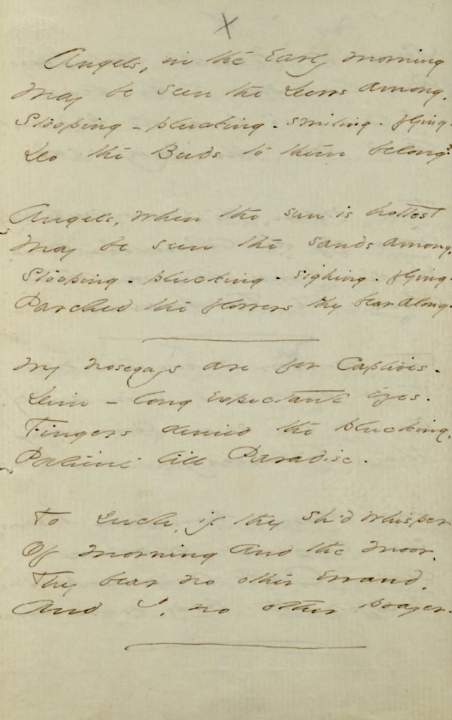 X
Angels, in the Early Morning
May be seen the Dews among,
Stooping - plucking - smiling - flying -
Do the Buds to them belong?
Angels, when the sun is hottest
May be seen the sands among,
Stooping - plucking - sighing - flying -
Parched the flowers they bear along.
My nosegays are for Captives -
Dim - long expectant Eyes -
Fingers denied the plucking,
Patient till Paradise -
To such, if they sh'd whisper
Of morning and the moor,
They bear no other errand,
And I, no other prayer.